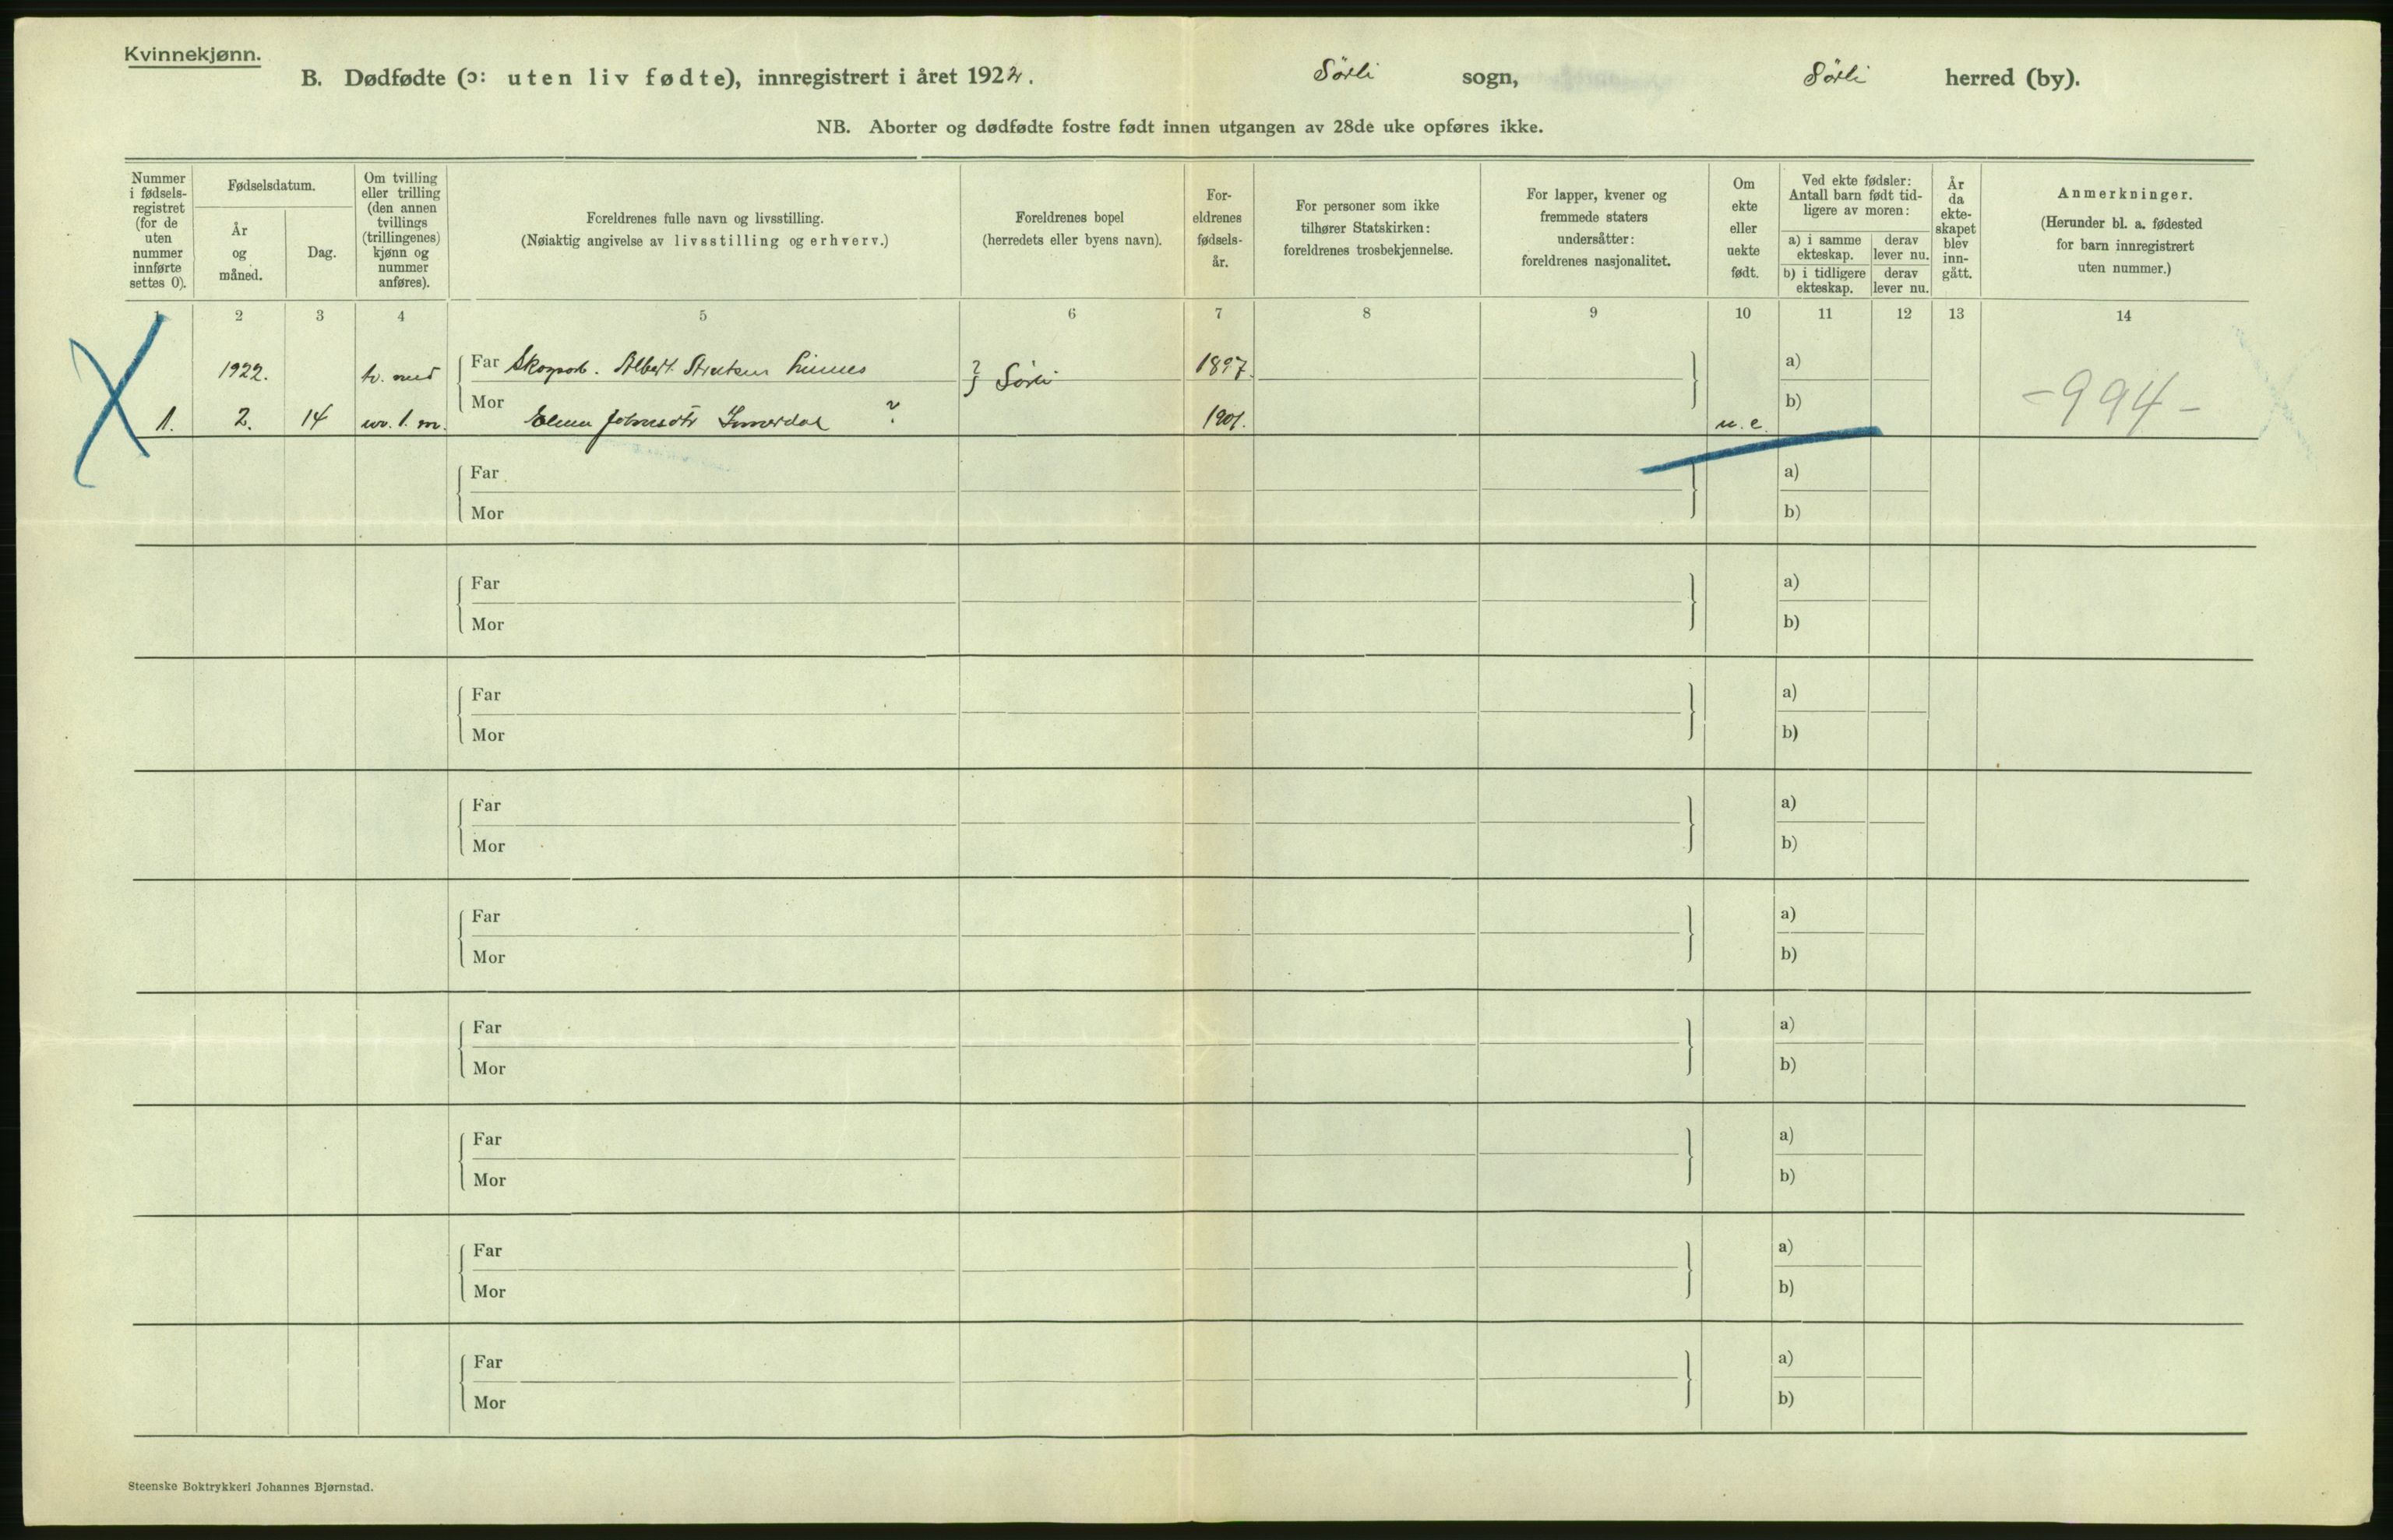 Kvinnekjønn.
B. Dødfødte (ɔ: uten liv fødte), innregistrert i året 1922. Sørli sogn, Sørli herred (by).
NB. Aborter og dødfødte fostre født innen utgangen av 28de uke opføres ikke.
Nummer i fødsels-registret (for de uten nummer innførte settes 0).
Fødselsdatum.
År og måned.
Dag.
Om tvilling eller trilling (den annen tvillings (trillingenes) kjønn og nummer anføres).
Foreldrenes fulle navn og livsstilling.
(Nøiaktig angivelse av livsstilling og erhverv.)
Foreldrenes bopel
(herredets eller byens navn).
For-eldrenes fødsels-år.
For personer som ikke tilhører Statskirken: foreldrenes trosbekjennelse.
For lapper, kvener og fremmede staters undersåtter: foreldrenes nasjonalitet.
Om ekte eller uekte født.
Ved ekte fødsler: Antall barn født tid-ligere av moren:
a) i samme ekteskap.
derav lever nu.
b) i tidligere ekteskap.
derav lever nu.
År da ekte-skapet blev inn-gått.
Anmerkninger.
(Herunder bl. a. fødested for barn innregistrert uten nummer.)
1 2 3 4 5 6 7 8 9 10 11 12 13 14
1922. tv. med Far Albert 1897. a)
Sørli -994-
1. 2. 14 nr. 1. m. Mor Johnsdtr ? 1901. u. e. b)
Far a)
Mor b)
Far a)
Mor b)
Far a)
Mor b)
Far a)
Mor b)
Far a)
Mor b)
Far a)
Mor b)
Far a)
Mor b)
Far a)
Mor b)
Far a)
Mor b)
Steenske Boktrykkeri Johannes Bjørnstad.